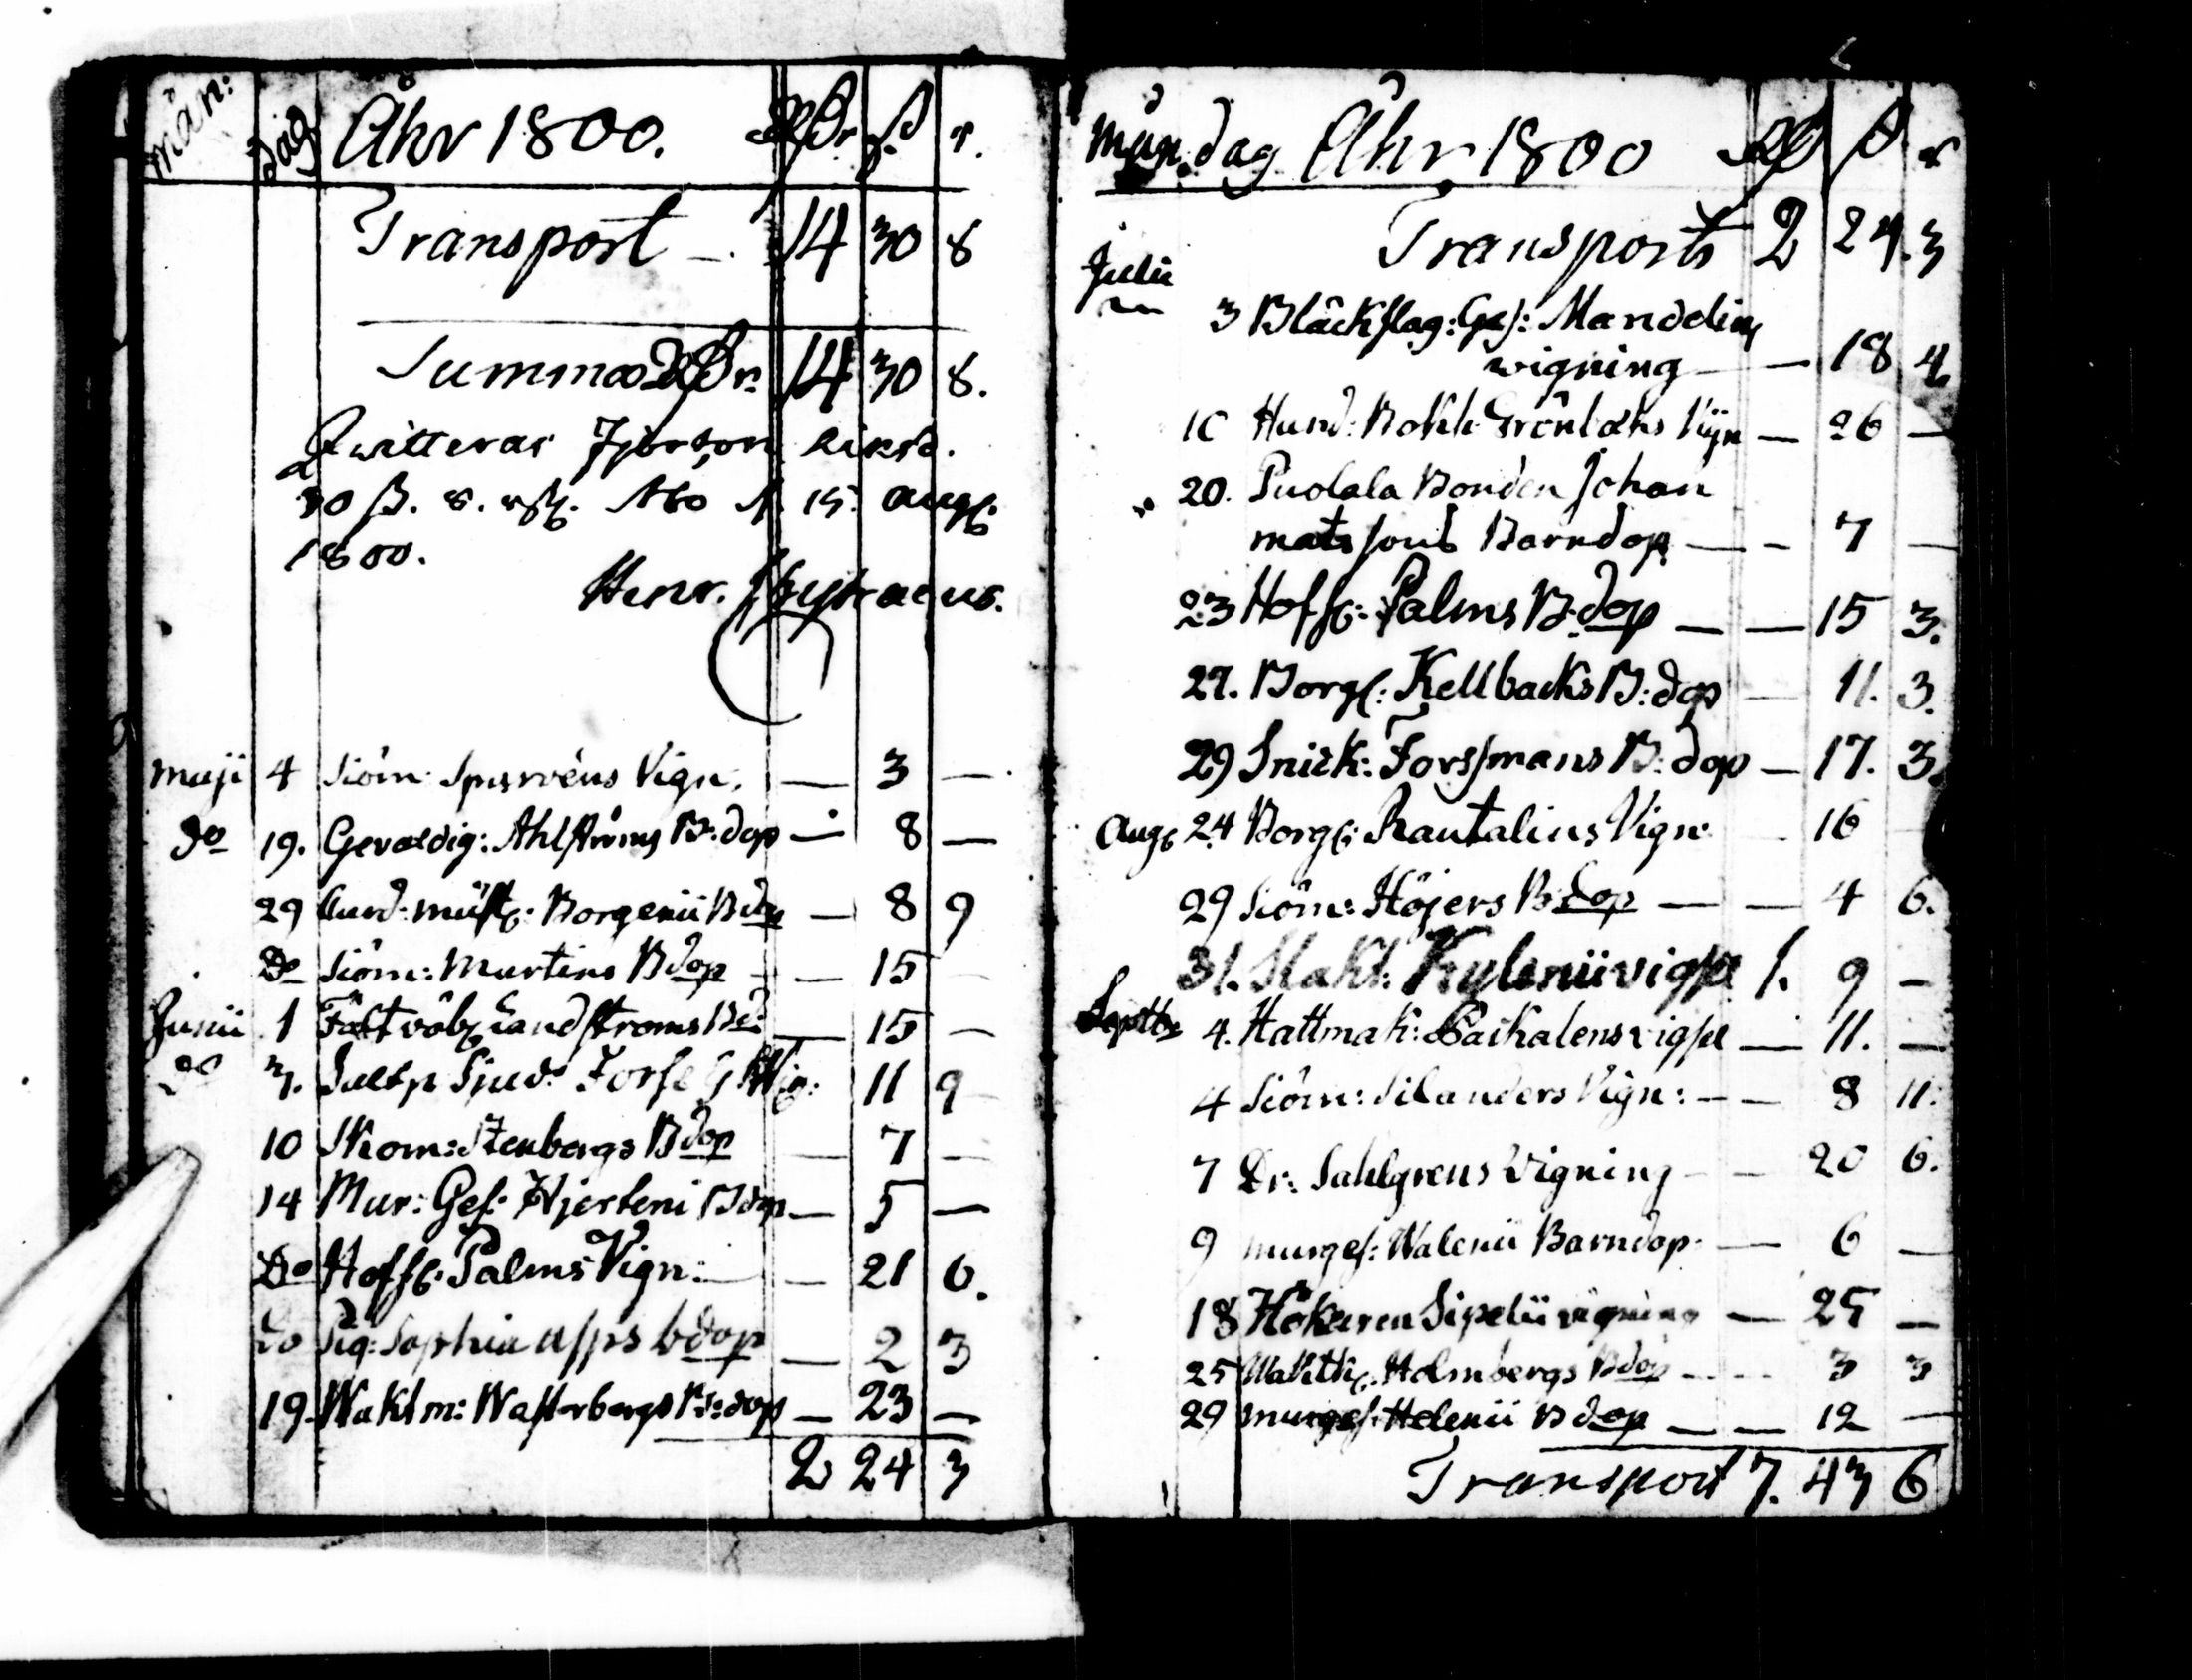 mån: dag Åhr 1800. RDr ß r.
Transport - 14 30 8
Summa RDr 14 30 8.
Qwitteras Fjorton Riksd.
30 ß. 8. rst. Åbo d. 15 Aug.
1800.
Henr.
Maji 4 Siöm: Sparvéns Vign. — 3 —
do 19. Gevaldig: Ahlströms B:dop — 8 —
29 Borgenii Bdop — 8 9
Do Siöm: Martins Bdop — 15 —
Junii 1 Landströms — 15 —
do 3. 11 9
10 Skom: Stenbergs Bdop — 7 —
14 Mur: Ges: Hjerteni Bdop — 5 —
Do Hoffc: Palms Vign: — 21 6.
do Pig: Sophia Asps bdop — 2 3
19. Waktm: Wasterbergs B:dop — 23 —
2 24 3
Mån. dag Åhr 1800 RD ß r
Transport 2 24. 3
Julii
3 Bläckslag: Ges: Mandelin
wigning — — 18 4
10 Grönlohs Vign — 26 —
20. Puolala Bonden Johan
Matssons Barndop — - 7 —
23 Hoffc: Palms B:dop — — 15 3.
27. Borgc: Kellbacks B:dop — 11. 3.
29 Snick: Forssmans B:dop — 17. 3.
Aug 24 Borgc: Rautalins Vign - 16
29 Siöm: Höjers B:dop — — 4 6.
31. Slakt: Kylenii vigsel 1. 9 —
Septbr 4. Hattmak: Packalens vigsel — 11. —
4 Siöm: Silanders Vign: - — 8 11.
7 Dr: Sahlgrens Vigning - — 20 6.
9 Murges: Walenii Barndop. — 6 —
18 Hökaren Sipelii vigning — 25 —
25 Holmbergs Bdop - — 3 3
29 Murges: Helenii Bdop — — 12 —
Transport 7. 43 6